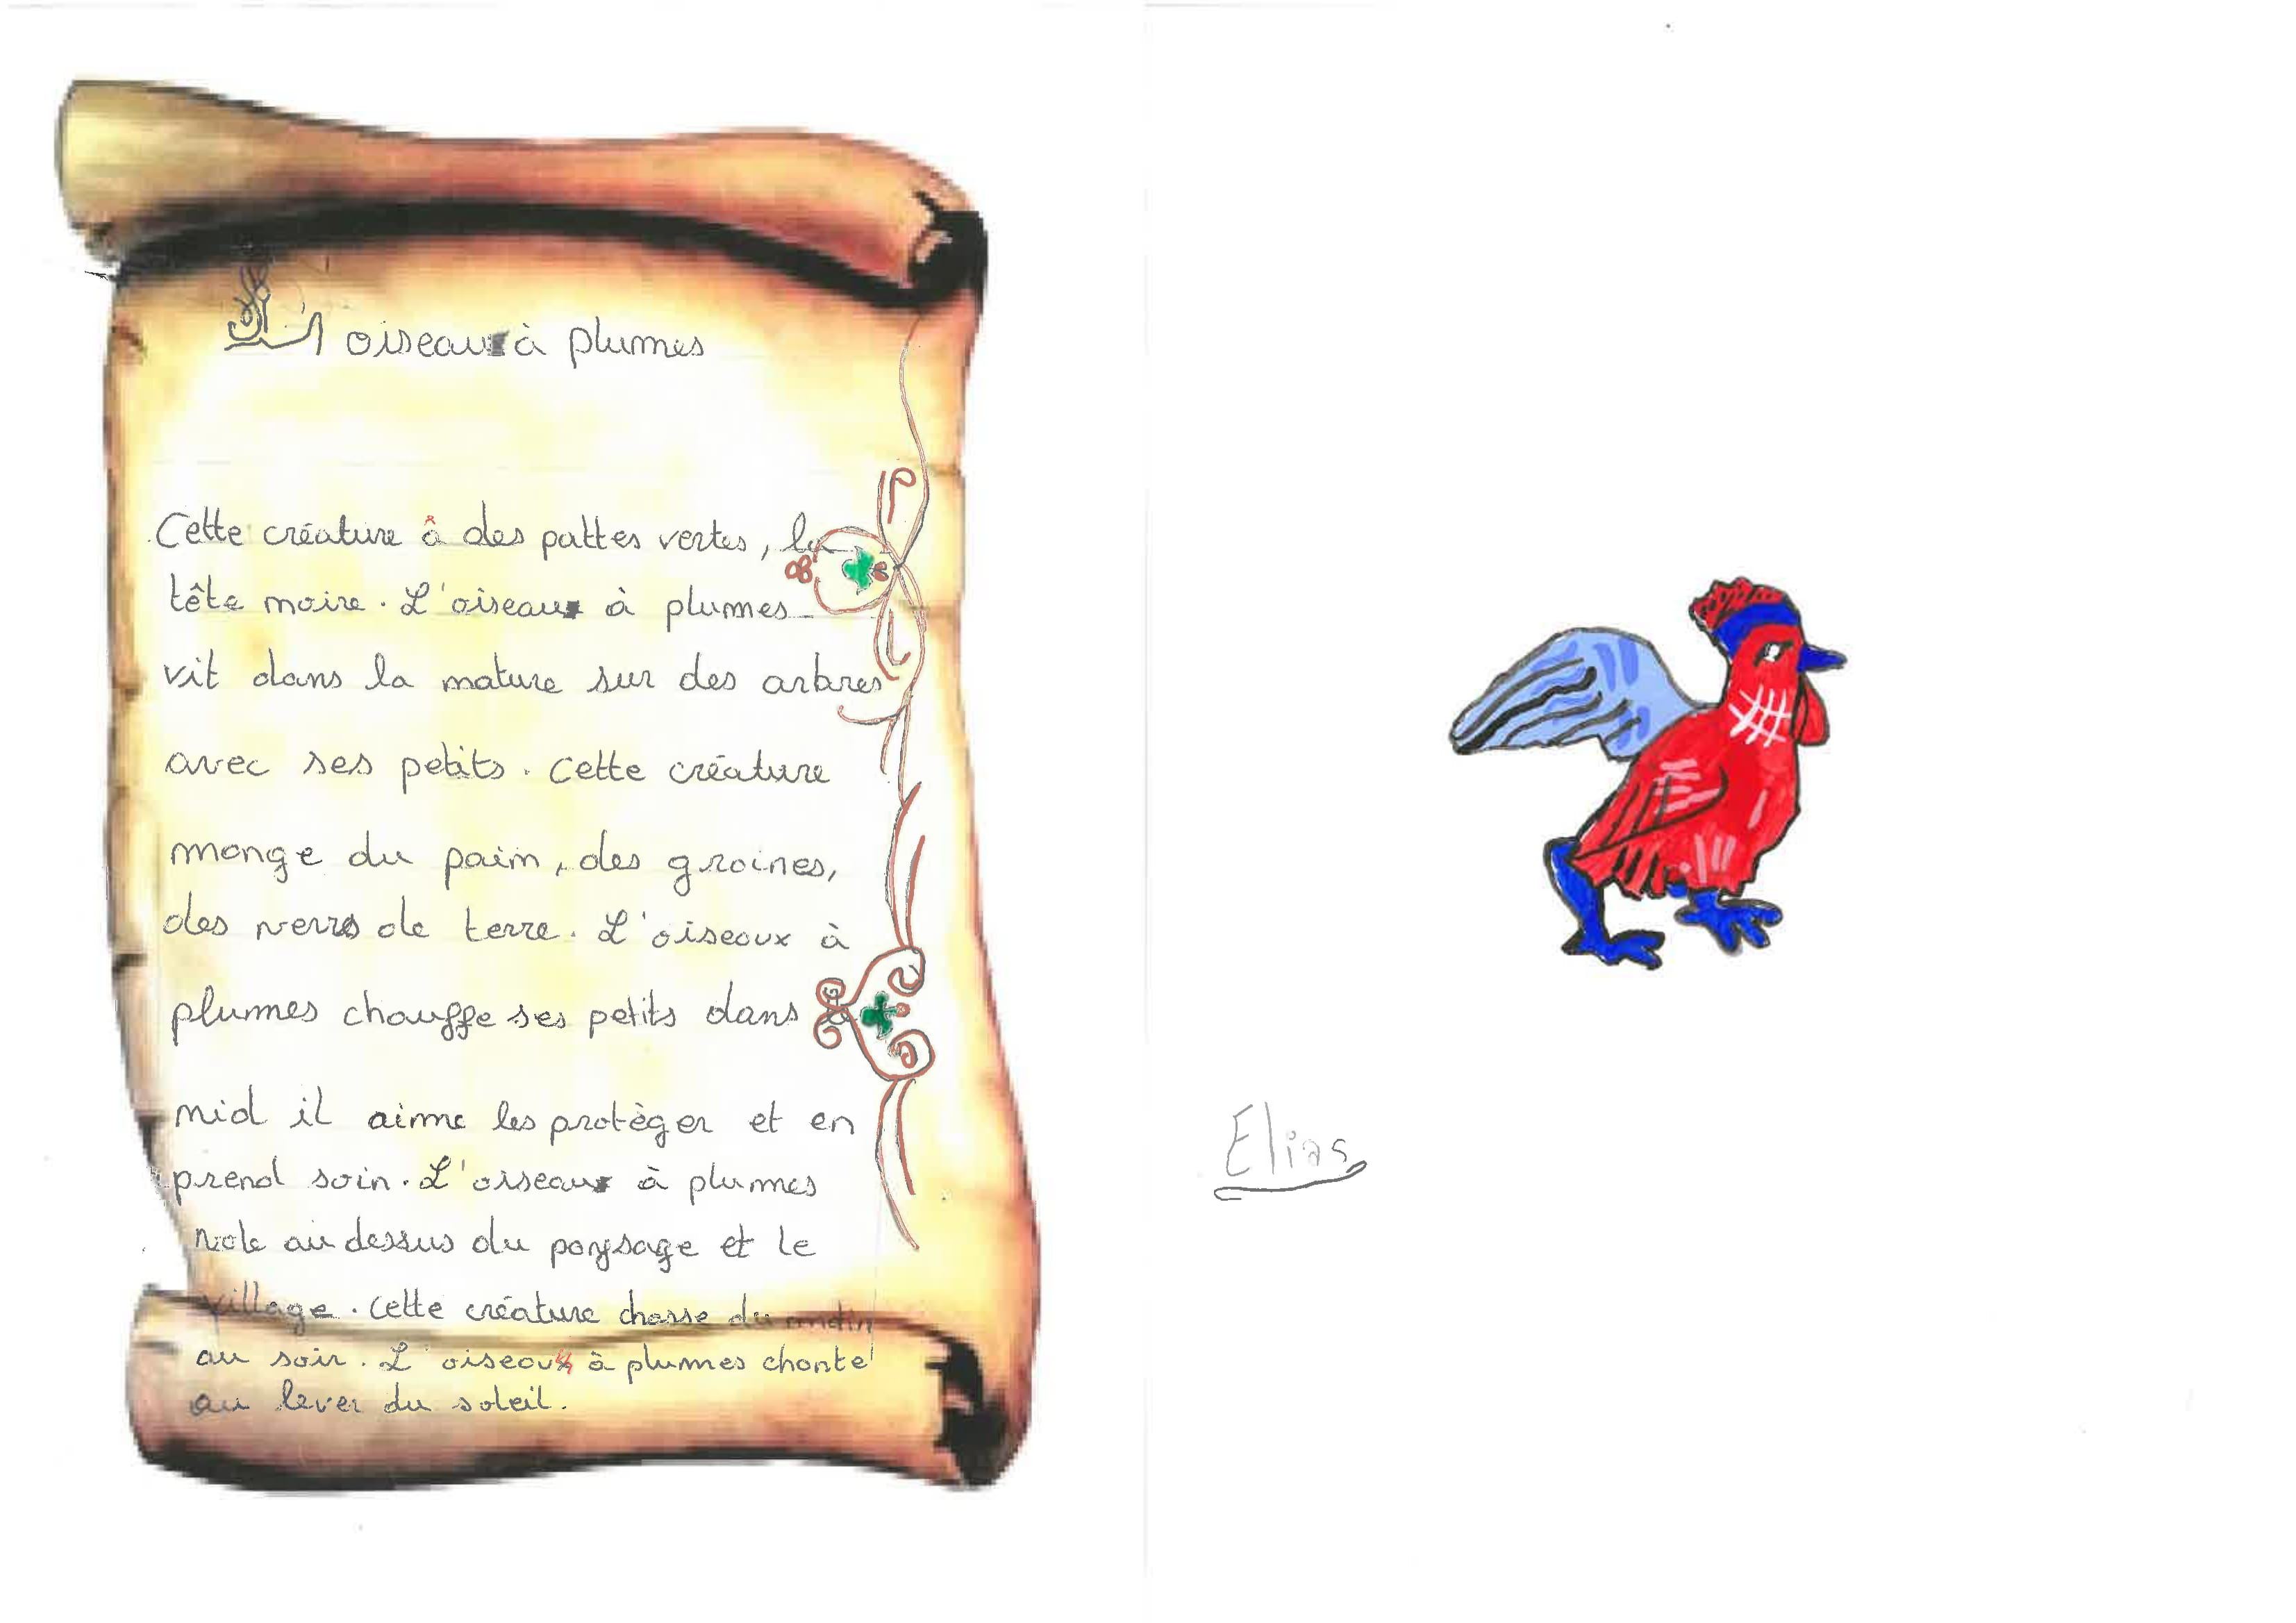 L'oiseau à plumes
Cette créature à des pattes vertes, la
tête noire. L'oiseau à plumes
vit dans la nature sur des arbres
avec ses petits. cette créature
mange du pain, des graines,
des verrs de terre. L'oiseaux à
plumes chauffe ses petits dans
nid il aime les protèger et en
prend soin. L'oiseau à plumes
vole au dessus du paysage et le
village. cette créature chasse du matin
au soir. L'oiseau à plumes chante
au lever du soleil.
Elias